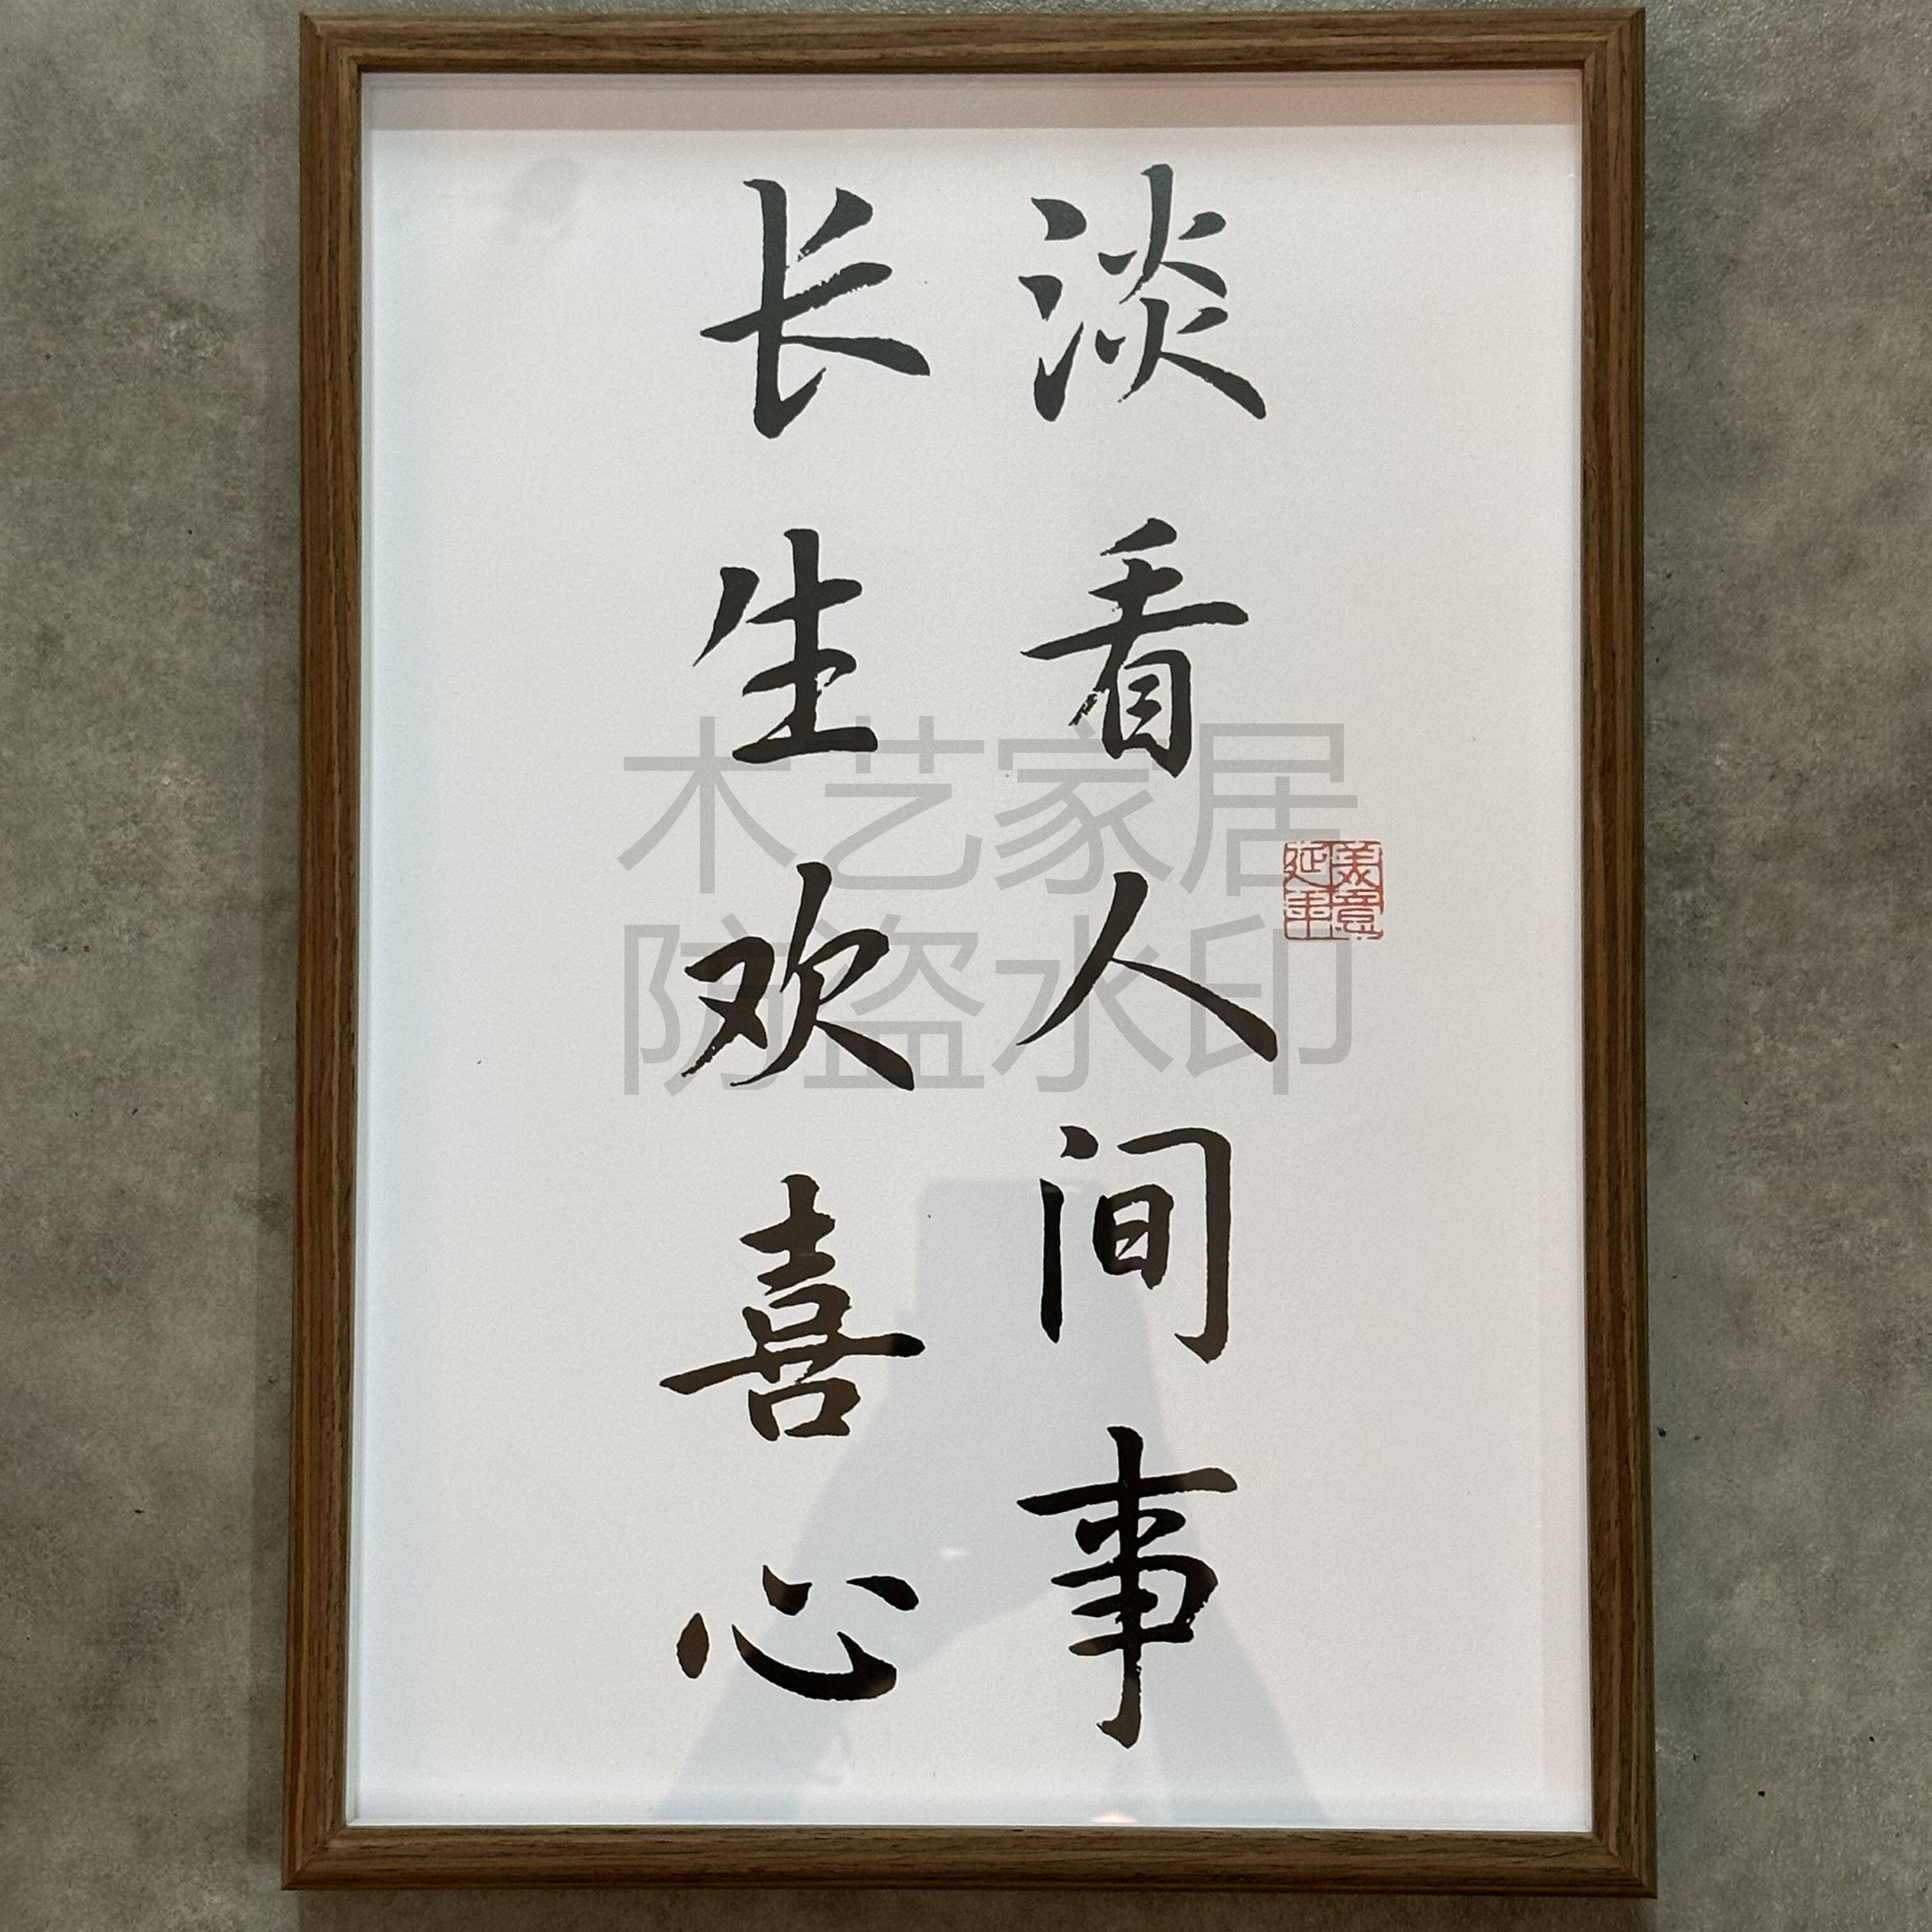 淡看人间事
长生欢喜心
美意延年
木艺家居
防盗水印